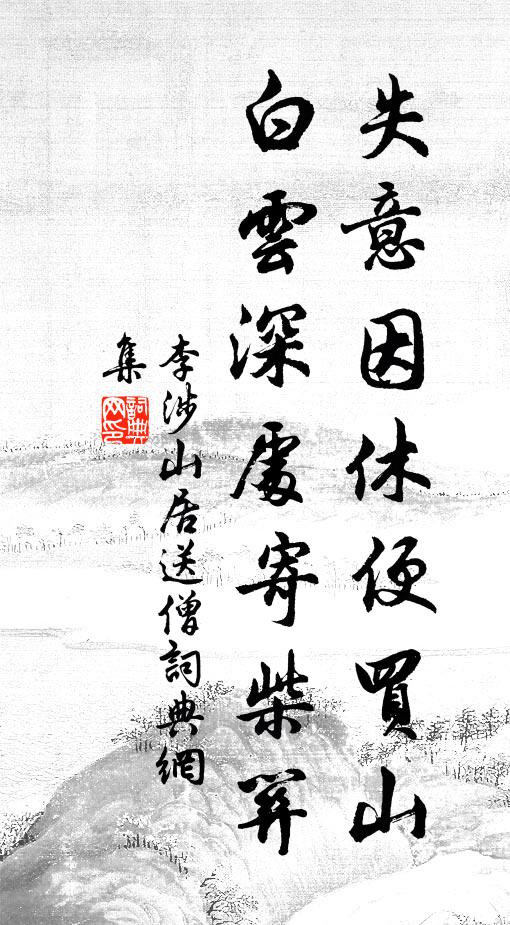 失意因休便買山
白雲深處寄柴關
李涉山居送僧詞典網
集
詞典網印